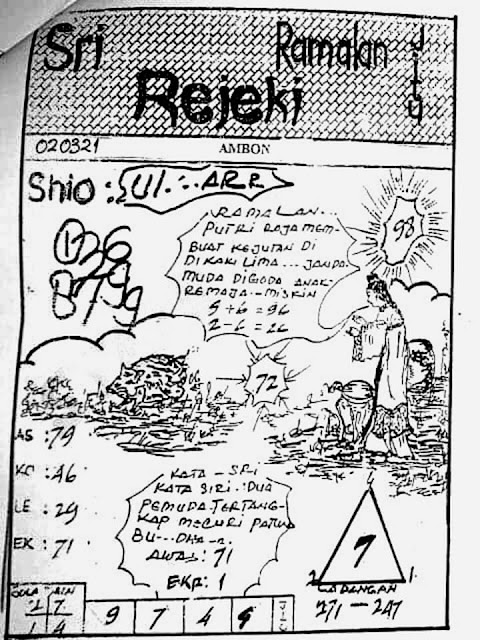 Sri
Ramalan
Jitu
Rejeki
020321
AMBON
Shio :
RAMALAN...
PUTRI RAJA MEM-
BUAT KEJUTAN DI
DI KAKI LIMA... JANDA
MUDA DIGODA ANAK
REMAJA.. MISKIN
9+6 = 96
2-6 = 26
98
72
AS : 79
KO : 46
LE : 29
EK : 71
KATA - SRI
KATA SIRI.. DUA
PEMUDA TERTANG-
KAP MECURI PATUN
BU---DHA
AWAS : 71
EKR : 1
7
2 1
CADANGAN
271 - 247
9 7 4 6